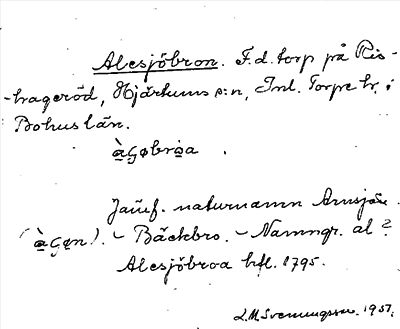 Alesjöbron. F.d. torp på Ris-
-hageröd, Hjärtums s:n, Inl. Torpe hr. i
Bohuslän.
àçøbròa .
Jämf. naturnamn Arnsjön.
(àçøn). – Bäckbro. – Namngr. al?
Alesjöbroa hfl. 1795.
1957.